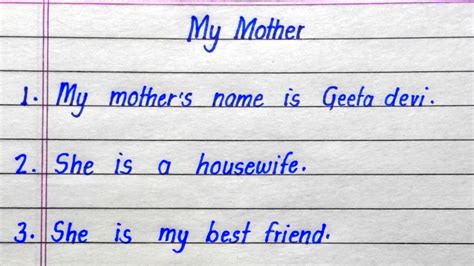 My Mother
1. My mother's name is Geeta devi.
2. She is a housewife.
3. She is my best friend.